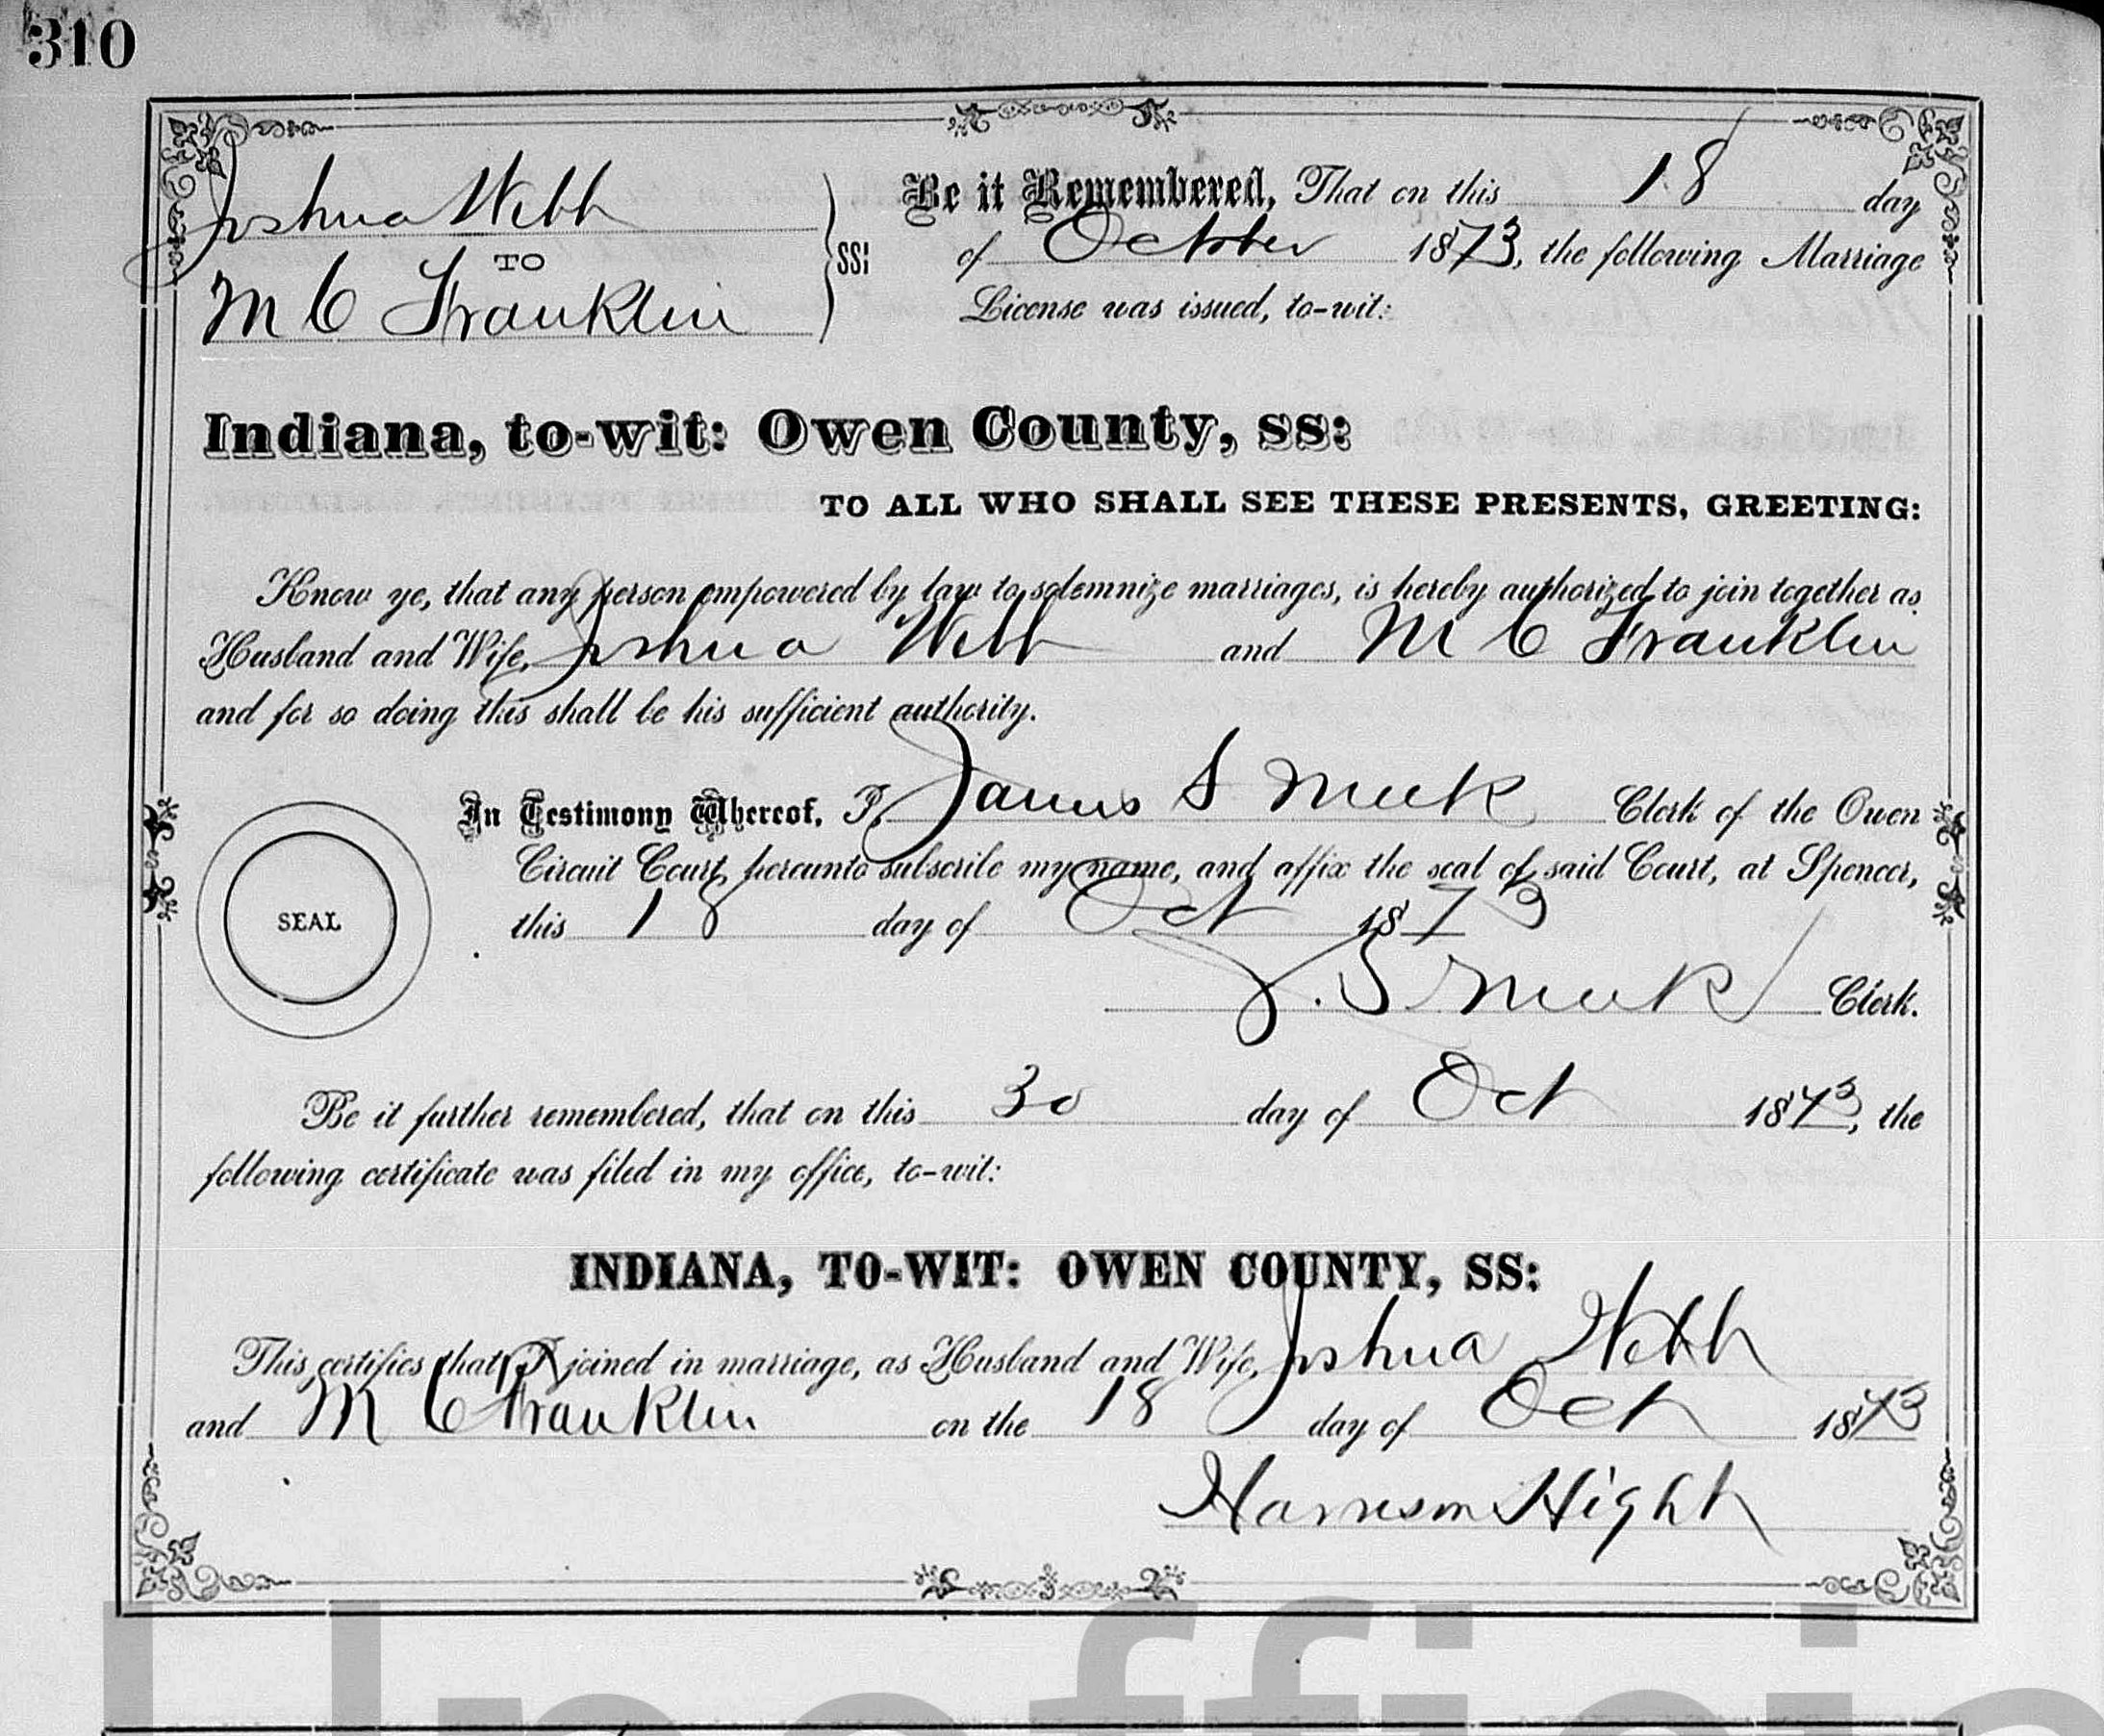 310
Joshua Webb
TO
M C Franklin
SS:
Be it Remembered, That on this 18 day
of October 1873, the following Marriage
License was issued, to-wit:
Indiana, to-wit: Owen County, ss:
TO ALL WHO SHALL SEE THESE PRESENTS, GREETING:
Know ye, that any person empowered by law to solemnize marriages, is hereby authorized to join together as
Husband and Wife, Joshua Webb and M C Franklin
and for so doing this shall be his sufficient authority.
In Testimony Whereof, I, James S Meek Clerk of the Owen
Circuit Court, hereunto subscribe my name, and affix the seal of said Court, at Spencer,
this 18 day of Oct 1873
SEAL
J. S Meek Clerk.
Be it further remembered, that on this 30 day of Oct 1873, the
following certificate was filed in my office, to-wit:
INDIANA, TO-WIT: OWEN COUNTY, SS:
This certifies that I joined in marriage, as Husband and Wife, Joshua Webb
and M C Franklin on the 18 day of Oct 1873
Harrison Hight
Unofficia